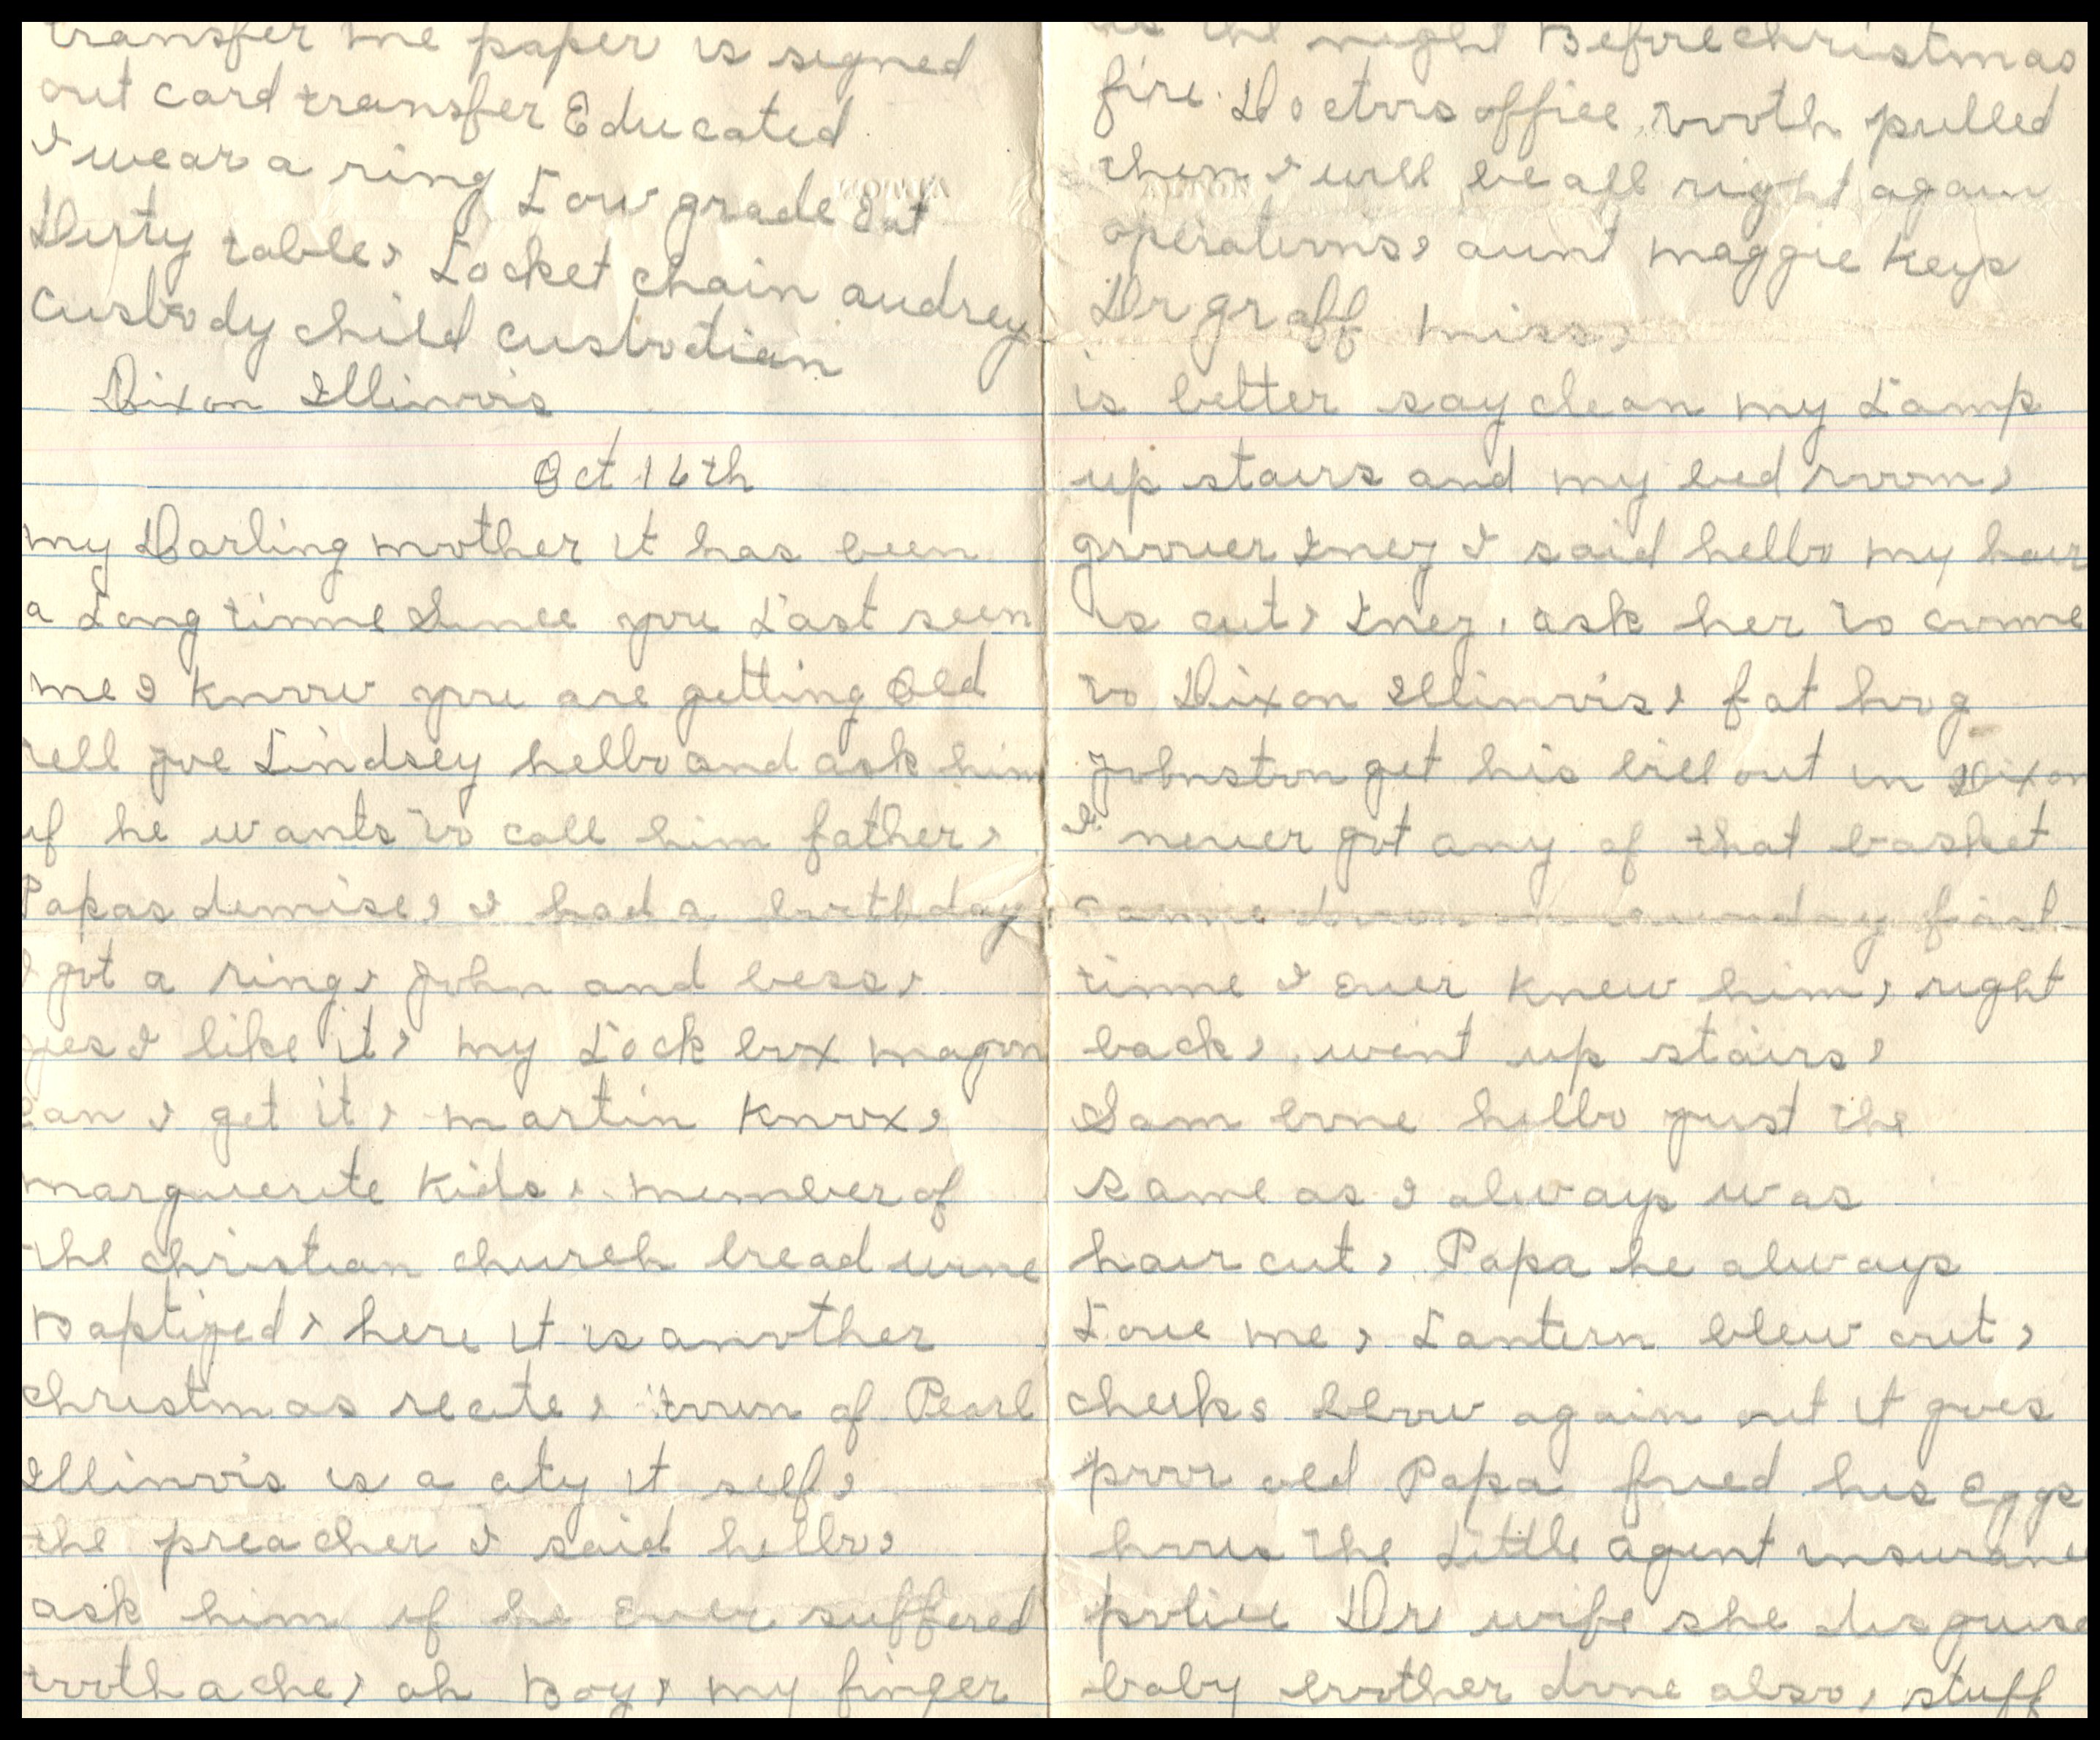 transfer me paper is signed
out card transfer Educated
I wear a ring Low grade Eat
Dirty table, Locket chain audrey
Custody child custodian
Dixon Illinois
Oct 16th
my Darling mother it has been
a Long timme Since you Last seen
me I know you are getting Old
tell Joe Lindsey hello and ask him
if he wants to call him father,
Papas demise, I had a birthday
I got a ring, John and bess,
yes I like it, my Lock box magon
can I get it, martin Knox,
marguerite Kids, member of
the christian church bread wine
Baptized, here it is another
christmas recite, town of Pearl
Illinois is a city it self,
the preacher I said hello,
ask him if he Ever suffered
toothache, oh Boy, my finger
the night Before christmas
fire. Doctors office, tooth pulled
then I will be all right again
operations, aunt maggie Keys
Dr graff miss,
is better say clean my Lamp
up stairs and my bed room,
grover Inez I said hello my hair
is cut, Inez, ask her to comme
to Dixon Illinois, fat hog
Johnston get his bill out in Dixon
I never got any of that basket
Came down on sunday first
timme I Ever knew him, right
back, went up stairs,
Sam bone hello just the
same as I always was
hair cut, Papa he always
Love me, Lantern blew out,
cheeks blow again out it goes
poor old Papa fried his Eggs
hows the Little agent insurance
police Dr wife she disguise
baby brother done also, stuff